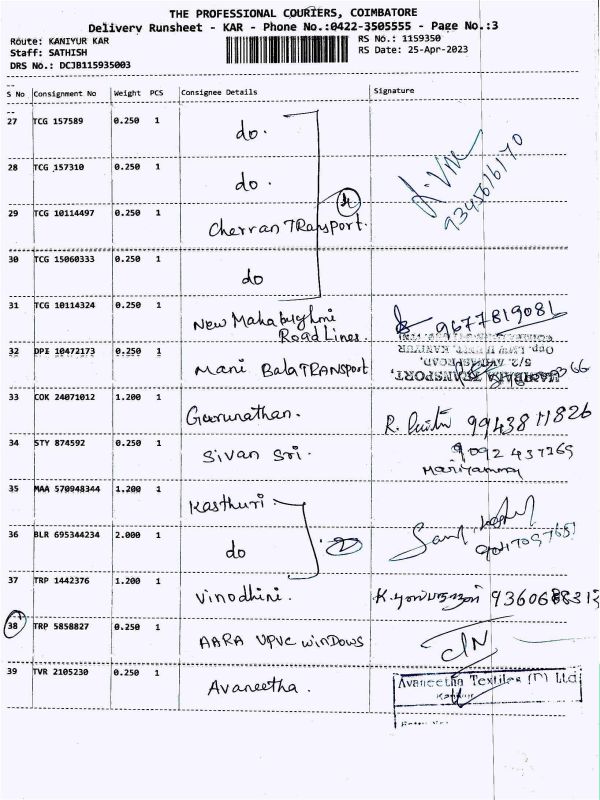 THE PROFESSIONAL COURIERS, COIMBATORE
Delivery Runsheet - KAR - Phone No.:0422-3505555 - Page No.:3
Route: KANIYUR KAR
RS No.: 1159350
Staff: SATHISH
RS Date: 25-Apr-2023
DRS No.: DCJB115935003
S No Consignment No Weight PCS Consignee Details Signature
27 TCG 157589 0.250 1 do.
28 TCG 157310 0.250 1 do.
9345616170
29 TCG 10114497 0.250 1 Cherran TRansport.
30 TCG 15060333 0.250 1 do
31 TCG 10114324 0.250 1 New Mahabulghmi
Road Lines 9677819081
32 DPI 10472173 0.250 1 Mani Bala TRANSPORT
33 COK 24071012 1.200 1 Goorunathan. R. 9943811826
34 STY 874592 0.250 1 Sivan Sri. 9092437269
Mariyammy
35 MAA 570948344 1.200 1 Kasthuri
36 BLR 695344234 2.000 1 do 2
37 TRP 1442376 1.200 1 Vinodhini.
38 TRP 5858827 0.250 1 AARA UPVC WINDOWS
39 TVR 2105230 0.250 1 Avaneetha. Avaneetha Textiles (P) Ltd